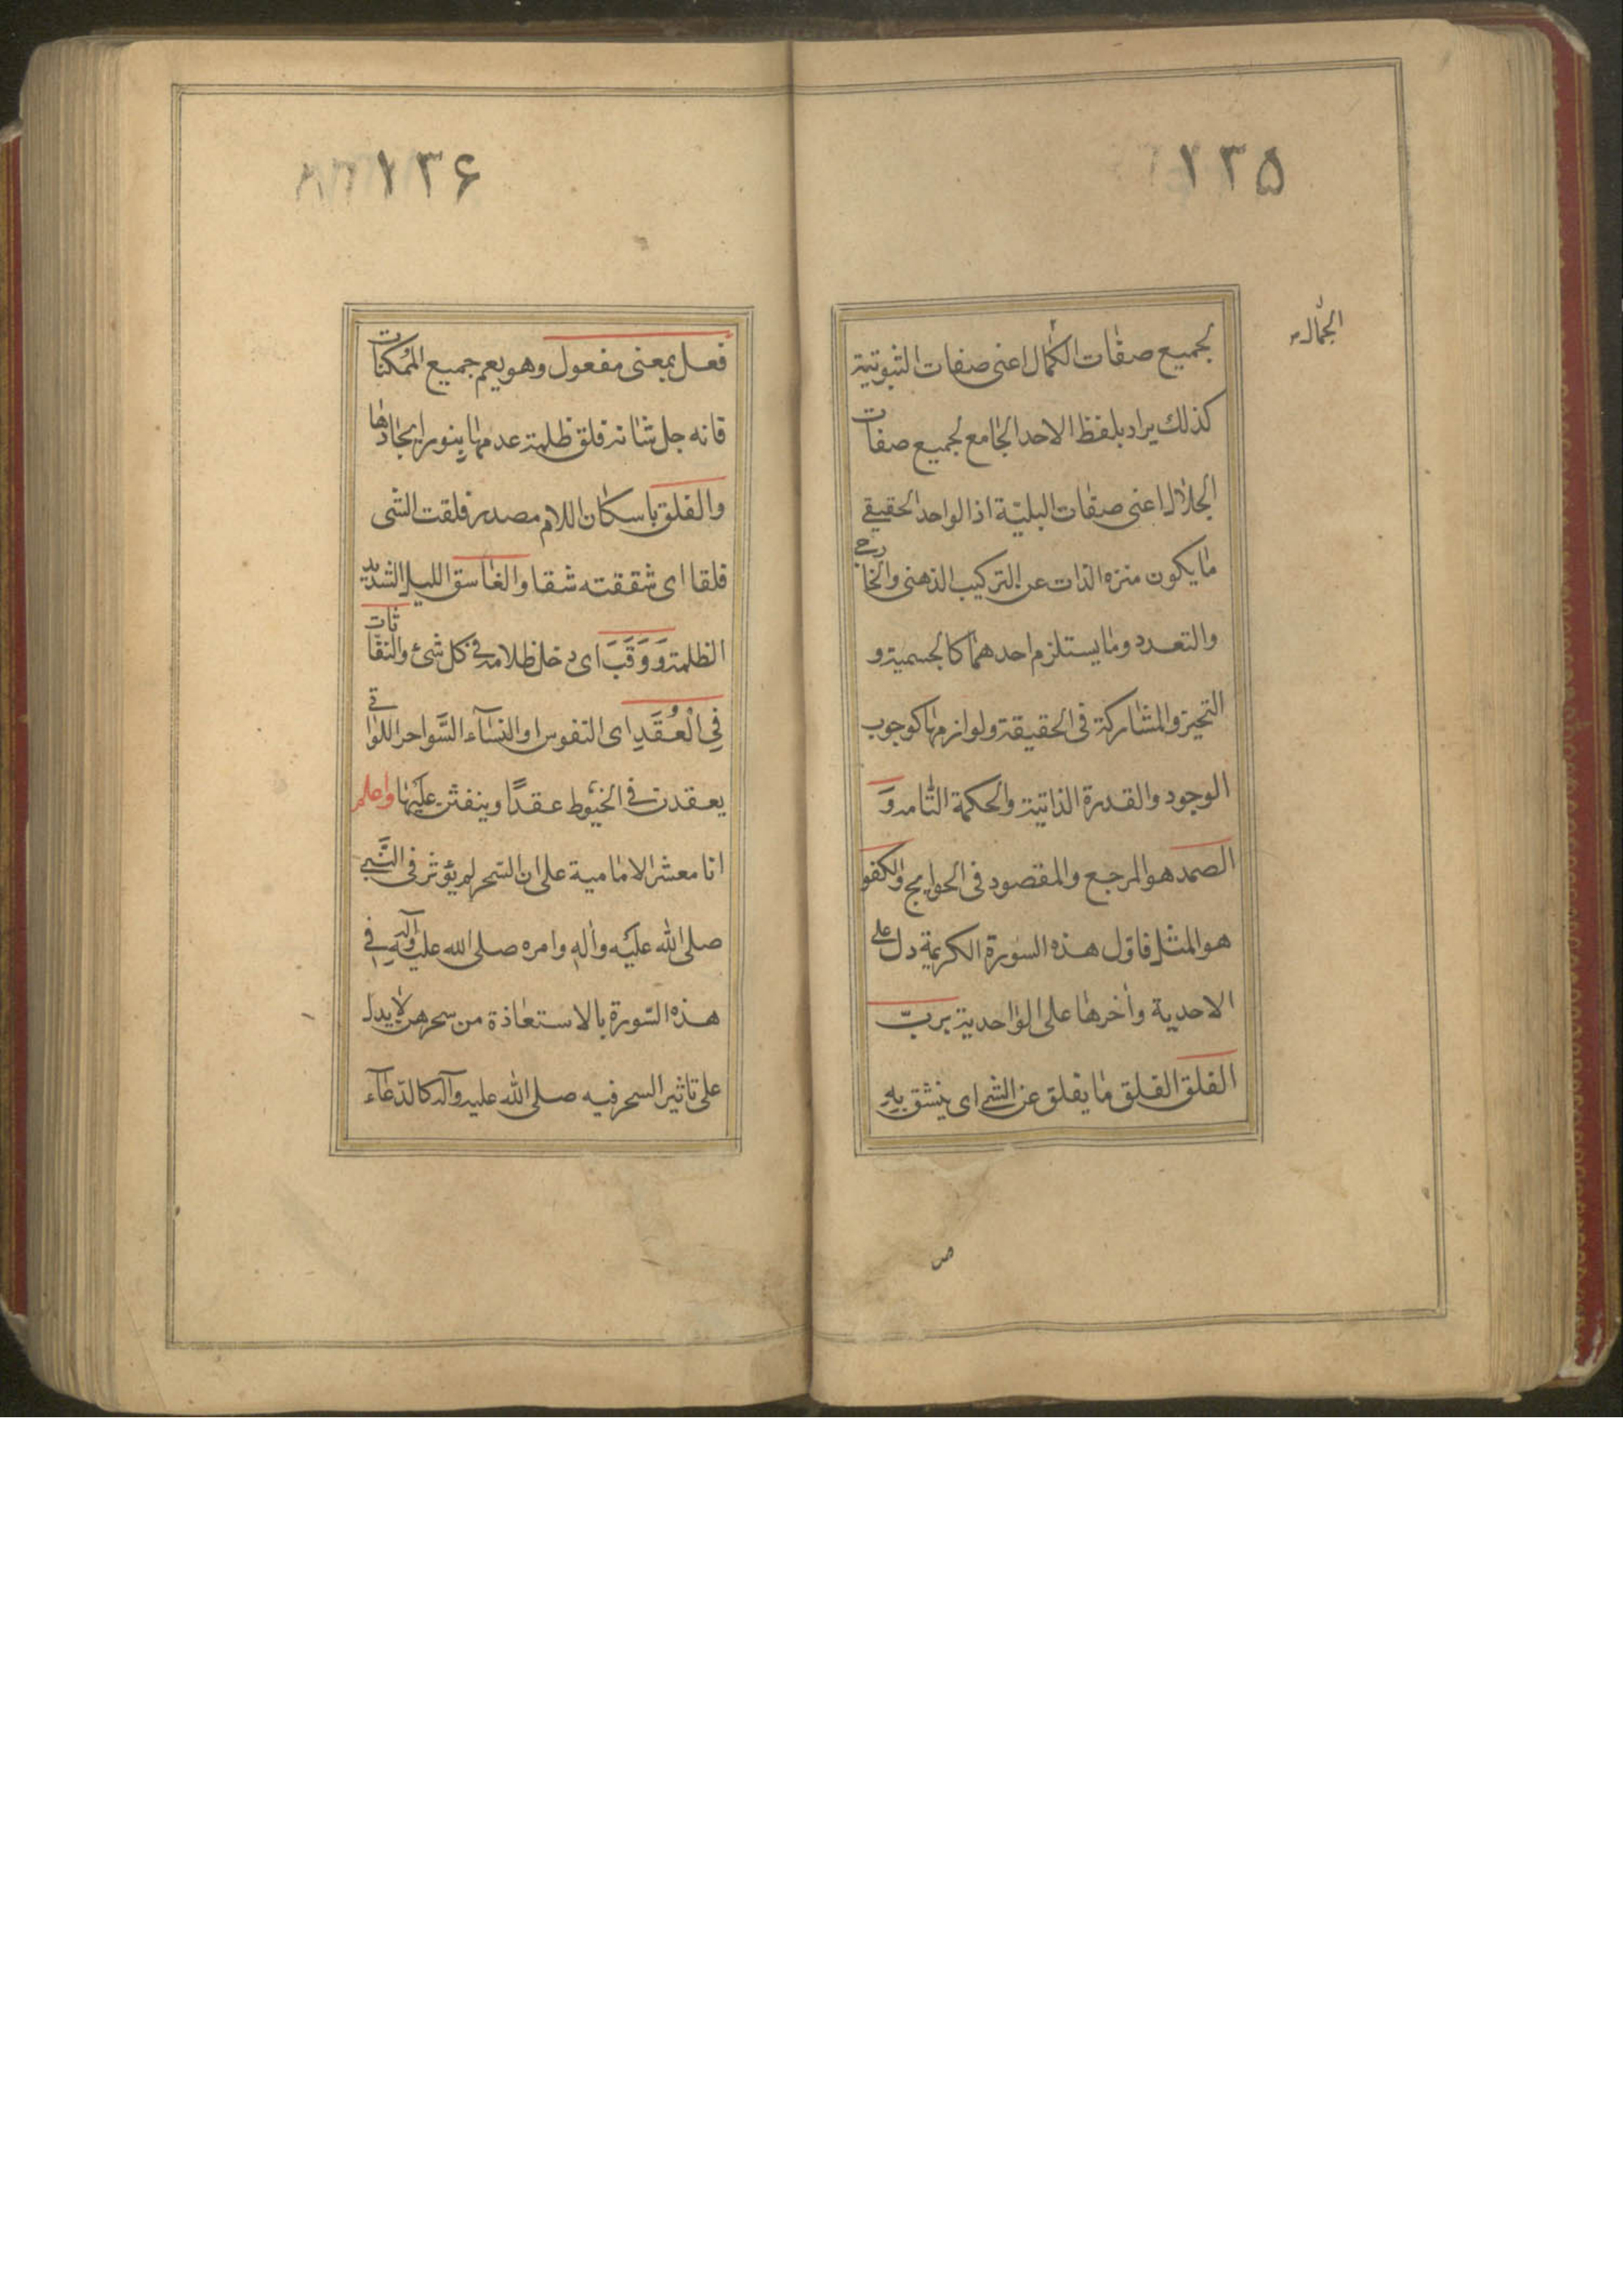 ۱۳۵
الجمال
لجميع صفات الكمال اعنى صفات الثبوتية
كذلك يراد بلفظ الاحد الجامع لجميع صفات
الجلال اعنى صفات السلبيّة اذ الواحد الحقيقے
ما يكون منزه الذات عن التركيب الذهنى والخارجے
والتعدد وما يستلزم احدهما كالجسمية و
التحيز والمشاركة فى الحقيقة ولوازمها كوجوب
الوجود والقدرة الذاتية والحكمة التامة وَ
الصمد هو المرجع والمقصود فى الحوايج والكفو
هو المثل فاول هذه السورة الكريمة دل على
الاحدية وأخرها على الواحدية بربّ
الفلق الفلق ما يفلق عن الشے اى ينشق بِهِ
۱۳۶
فعل بمعنى مفعول وهو يعم جميع الممكنات
فانه جل شانه فلق ظلمة عدمها بنور ايجادها
والفلق باسكان اللام مصدر فلقت الشى
فلقا اى شققته شقا والغاسق الليل الشديد
الظلمة وَوَقَبَ اى دخل ظلامه فے كل شئ والنفاثات
فِى الْعُقَدِ اى النفوس او النسآء السَّواحر اللواتے
يعقدن فے الخيُوط عقدًا وينفثن عليها واعلم
انا معشر الامامية على ان السّحر لم يؤثر فى النَّبے
صلى الله عليه وأله وامره صلى الله عليه وآلِهِ فے
هذه السّورة بالاستعاذة من سحرهن لا يدل
على تاثير السحر فيه صلى الله عليه وآله كالدّعآء